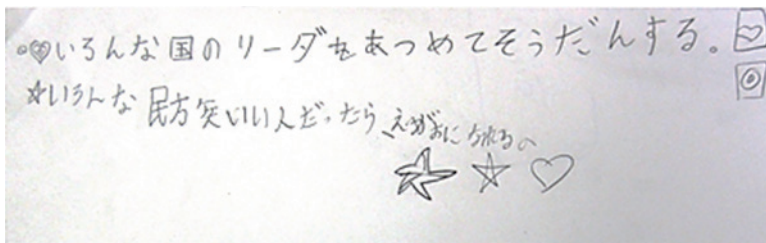 いろんな国のリーダをあつめてそうだんする。
いろんな民方矢いい人だったら、えがおになれるの